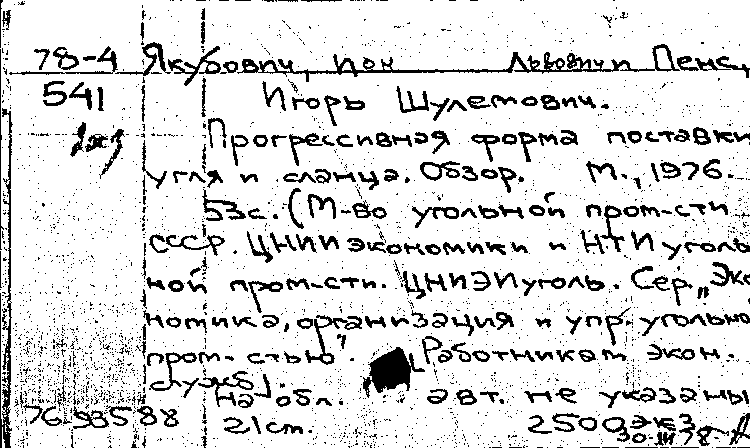 78-4 Якубович, Ион Львович и Пенс,
541 Игорь Шулемович.
Прогрессивная форма поставки
угля и сланца. Обзор. М., 1976.
53с. (М-во угольной пром-сти
СССР. ЦНИИ экономики и НТИ уголь
ной пром-сти. ЦНИЭИуголь. Сер. „Эко
номика, организация и упр. угольно
пром-стью". Работникам экон.
служб).
На обл. авт. не указаны
76-93588 21см. 2500 экз
30.III.78